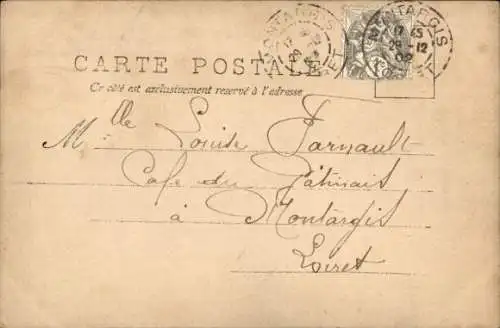 MONTARGIS
MONTARGIS
17 45
29 12
02
CARTE POSTALE
Ce côté est exclusivement reservé à l'adresse
Mlle Louise Farnault
Cafe du Gâtinais
à Montargis
Loiret